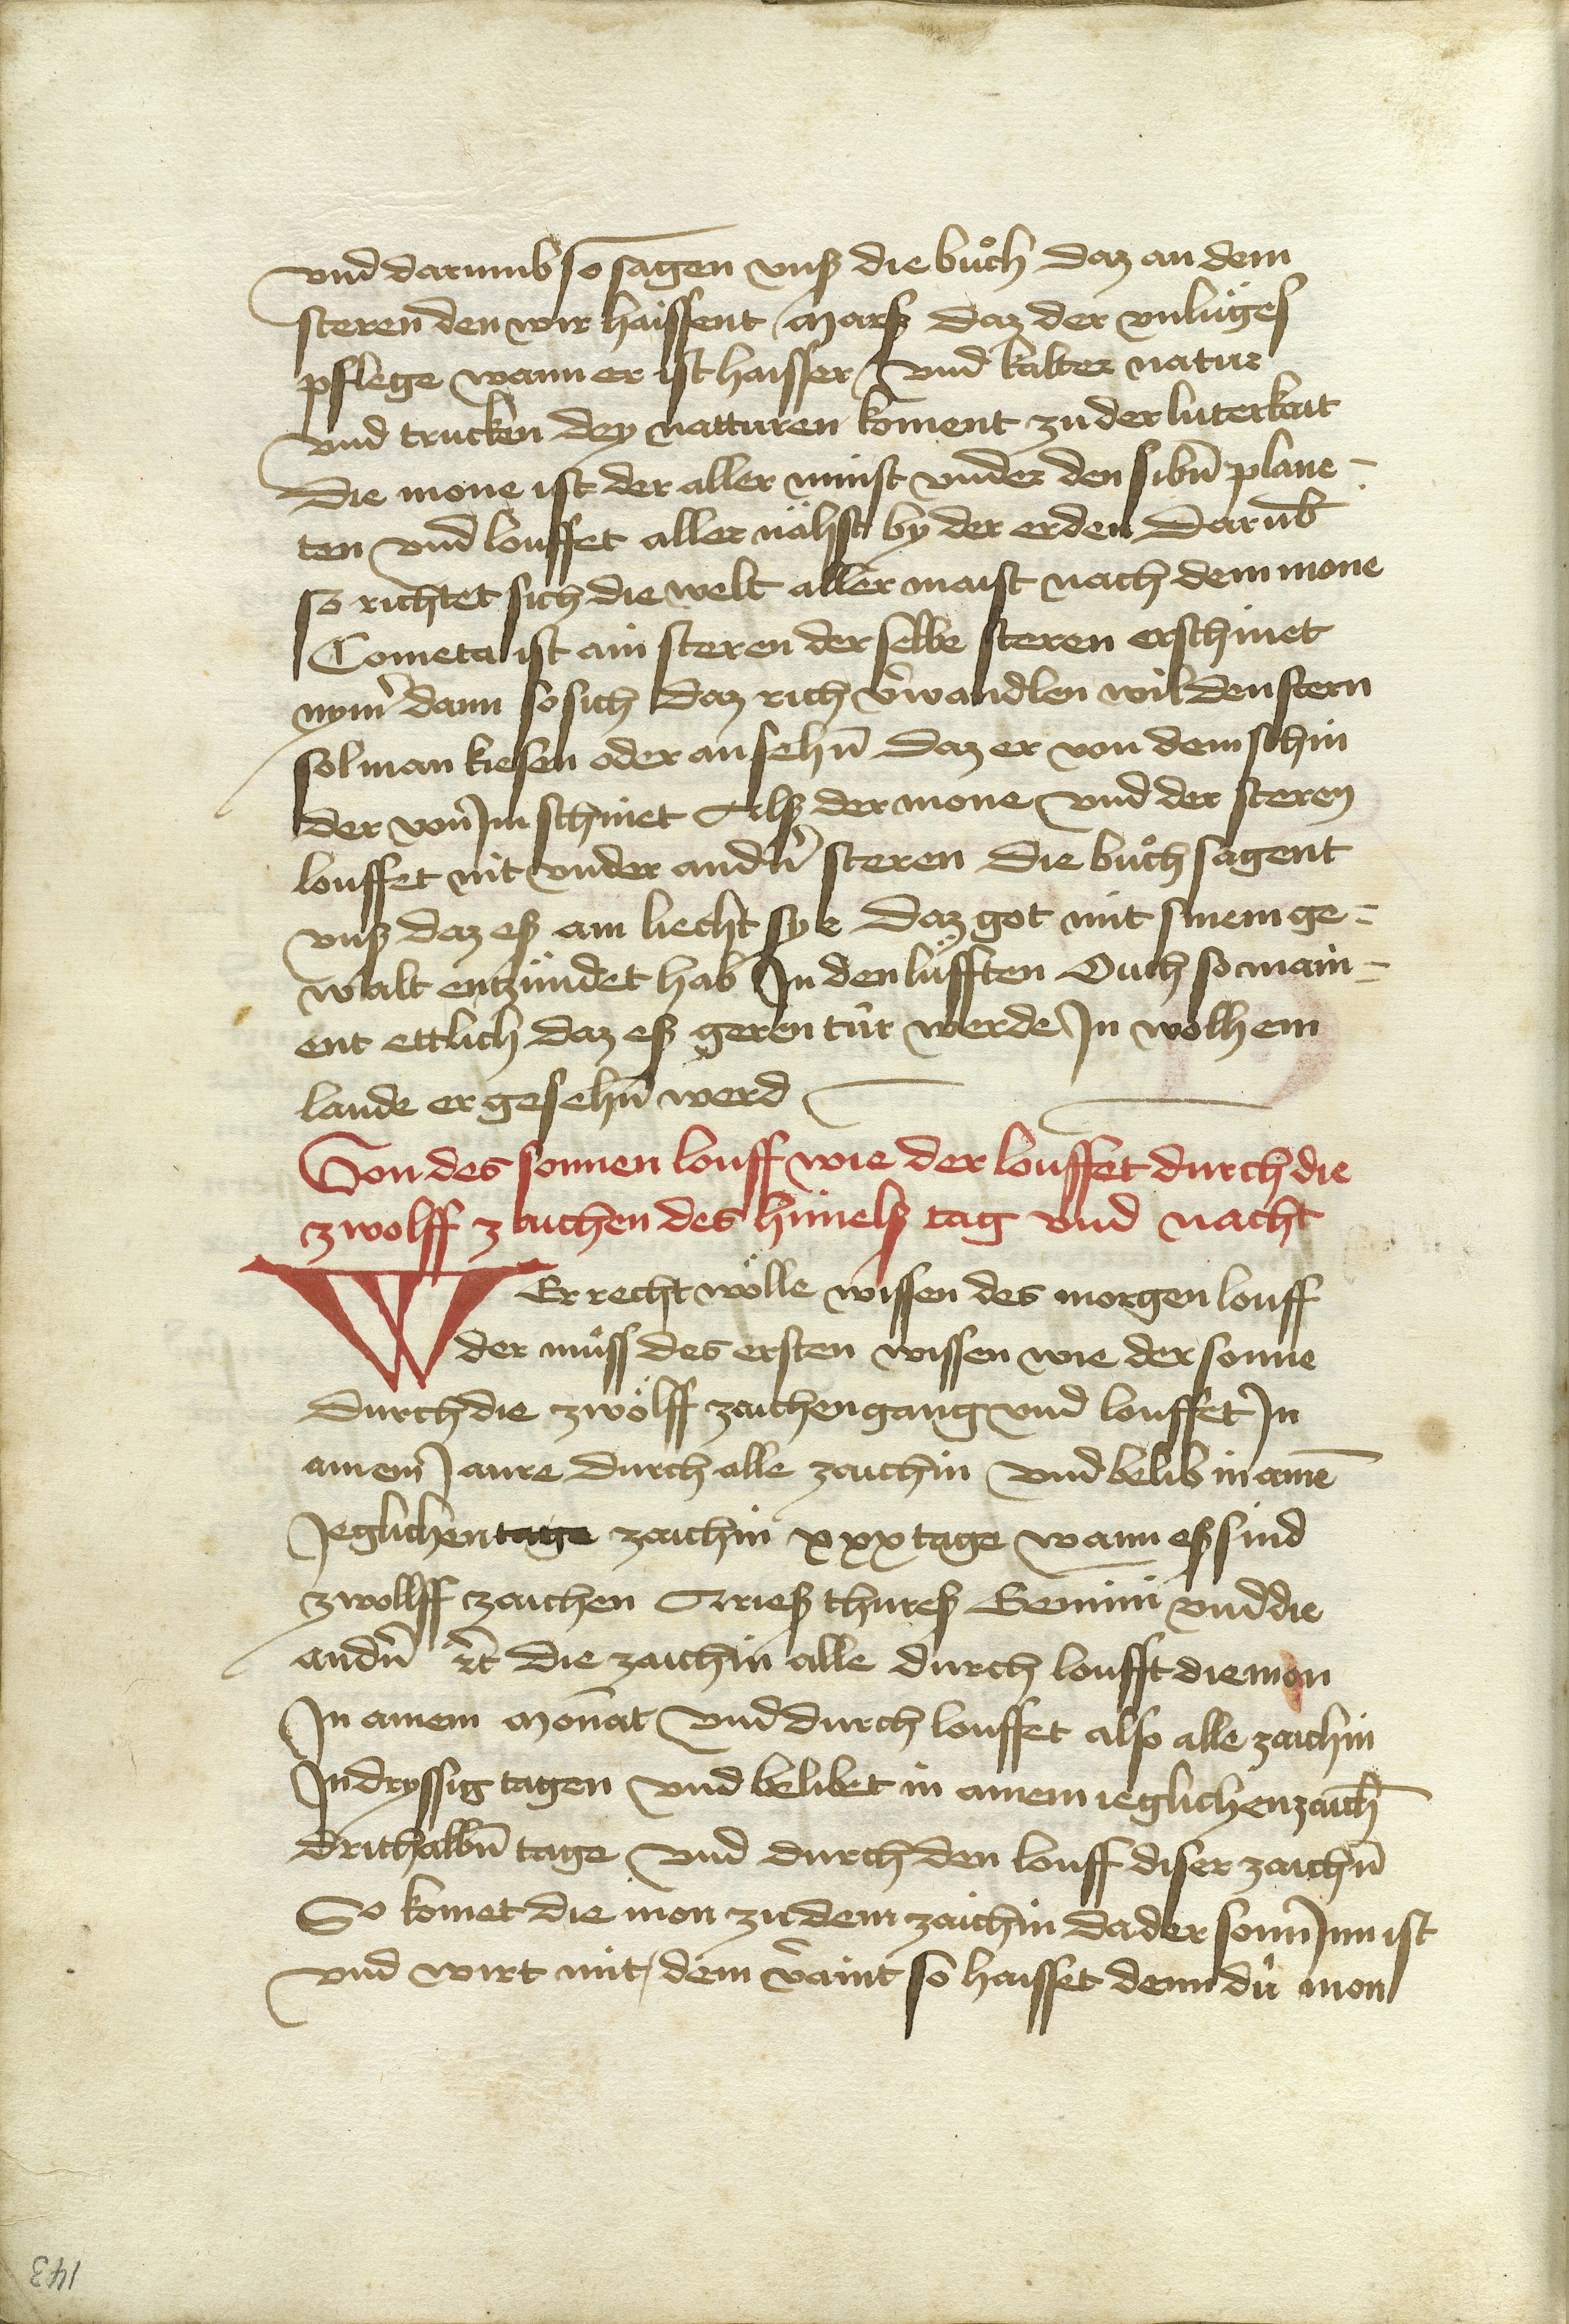 vnd darumb so sagen vnß die bůch daz an dem
steren den wir haissent Marß daz der vnlüges
pflege wann er ist haisser vnd kalter natur
vnd trucken dey natturen koment zu der luterkait
Die mone ist der aller minst vnder den sibn̄ plane-
ten vnd louffet aller nähst by der erden Darūb
so richtet sich die welt aller maist nach dem mone
Cometa ist ain steren der selbe steren erschinet
nym̄ dann so sich daz rich v̄wandlen wil den stern
sol man kiesen oder an sehn̄ daz er von dem schin
der von Im schinet Alß der mone vnd der steren
louffet nit vnder andn̄ steren Die bůch sagent
vnß daz eß ain liecht sye daz got mit sinem ge-
walt entzündet hab In den lüfften Ouch so main-
ent ettlich daz eß geren tür werde In wolhem
lande er gesehn̄ werd
Von des sonnen louff wie der louffet durch die
zwolff zaichen des himelß tag vnd nacht
WEr recht wölle wissen des morgen louff
der můss des ersten wissen wie der sonne
durch die zwölff zaichen gang vnd louffet In
ainem Jaure durch alle zaichin vnd belib in aine͞
Jeglichen tage zaichin xxx tage wann eß sind
zwollff zaichen Arieß thureß Gemini vnd die
andn̄ ꝛc die zaichin alle durch loufft die mon
In ainem Monat vnd durch louffet also alle zaichin
In dryssig tagen vnd belibet in ainem ieglichen zaich͞
drithalbn̄ tage vnd durch den louff diser zaichn̄
So komet die mon zu dem zaichin da der sonn̄ Inn ist
vnd wirt mit dem v̄aint so haisset denn dü mon
143